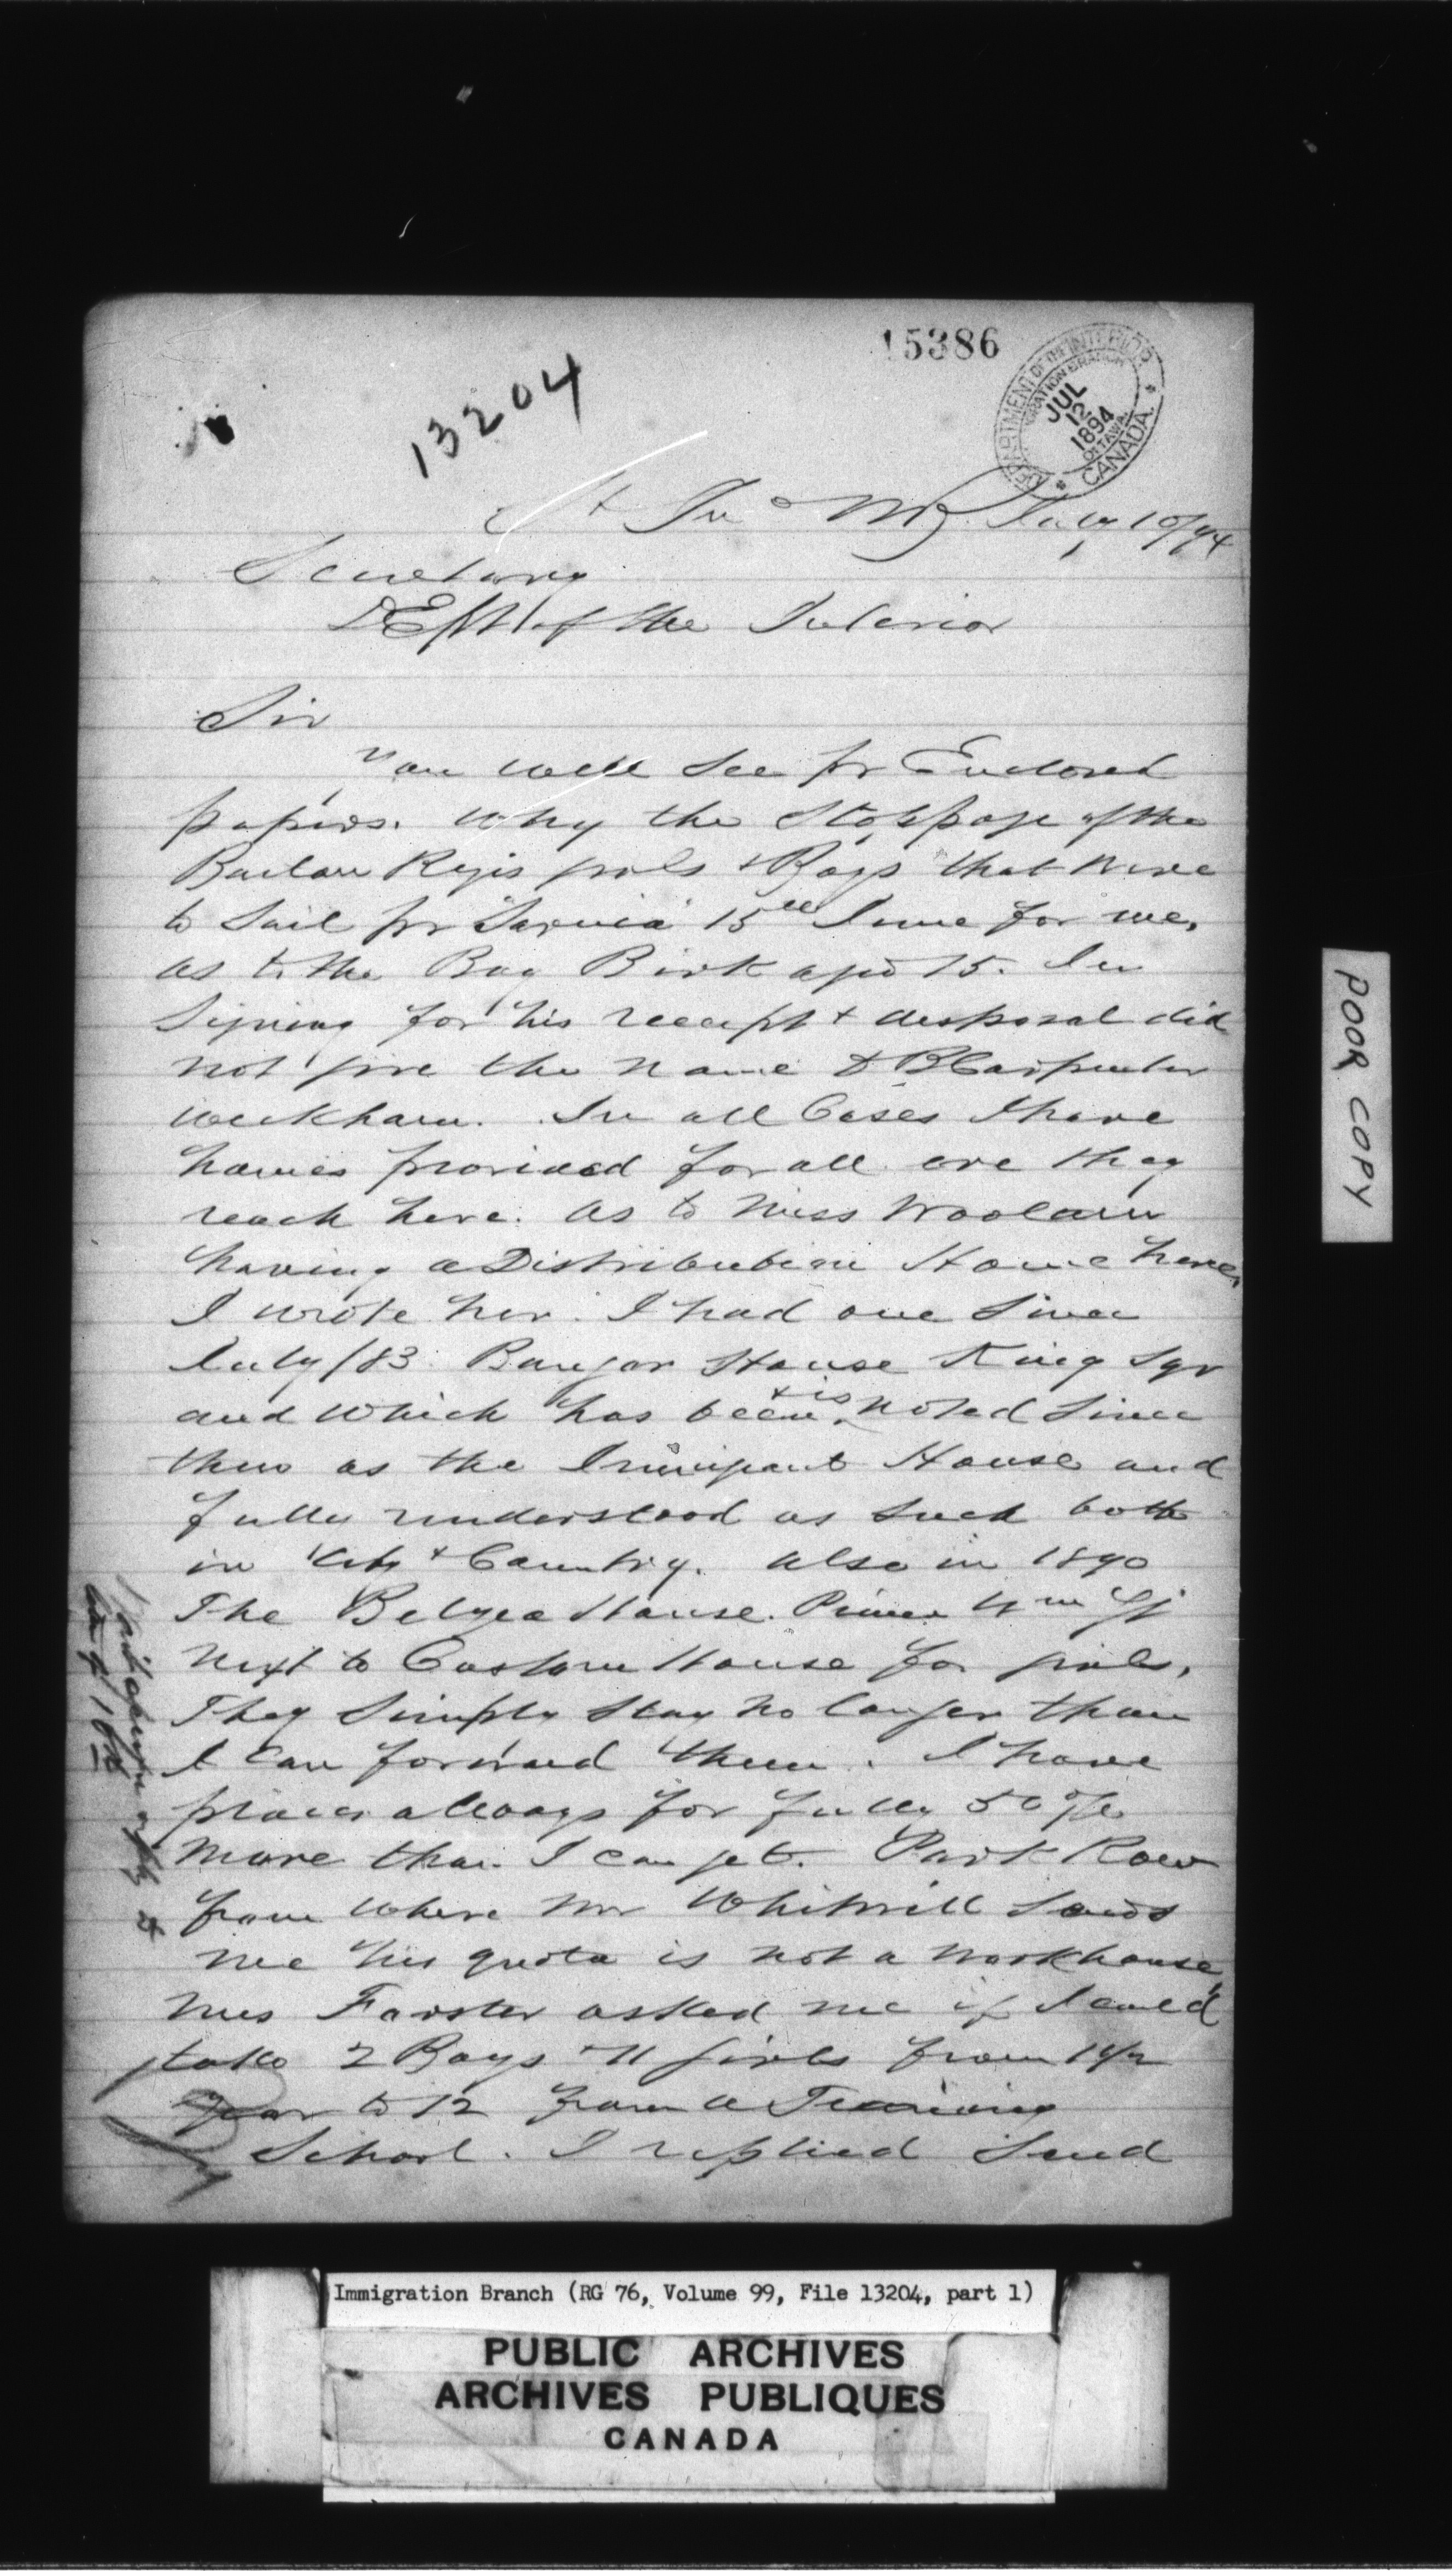 15386
13204
DEPARTMENT OF THE INTERIOR
IMMIGRATION BRANCH
JUL
12
1894
OTTAWA.
CANADA.
St Jn NB. July 10/94
Secretary
DEptt of the Interior
Sir
You will see pr Enclosed
papers. Why the Stoppage of the
Barton Regis girls & Boys that were
to Sail pr Sarnia 15th June for me,
as to the Boy Birk aged 15. In
Signing for his receipt & disposal did
not give the name D B Carpenter
Wickham. In all Cases I have
homes provided for all ere they
reach here. as to Miss Woolam
having a Distribution Home here,
I wrote her. I had one Since
July/83 Bangor House King Sqr
and Which has been & is noted Since
then as the Immigrant House and
fully understood as Such both
in City & Country. also in 1890
The Belyea House. Prince Wm St
next to Custom House for girls,
They Simply Stay no longer than
I Can forward them. I have
places always for fully 50 %
more than I can get. Park Row
from where Mr Whitwill Sends
me his quota is not a Workhouse,
Mrs Forster asked me if I could
take 2 Boys 11 girls from 1½
year to 12 from a Training
School. I replied Send
POOR COPY
Immigration Branch (RG 76, Volume 99, File 13204, part 1)
PUBLIC ARCHIVES
ARCHIVES PUBLIQUES
CANADA